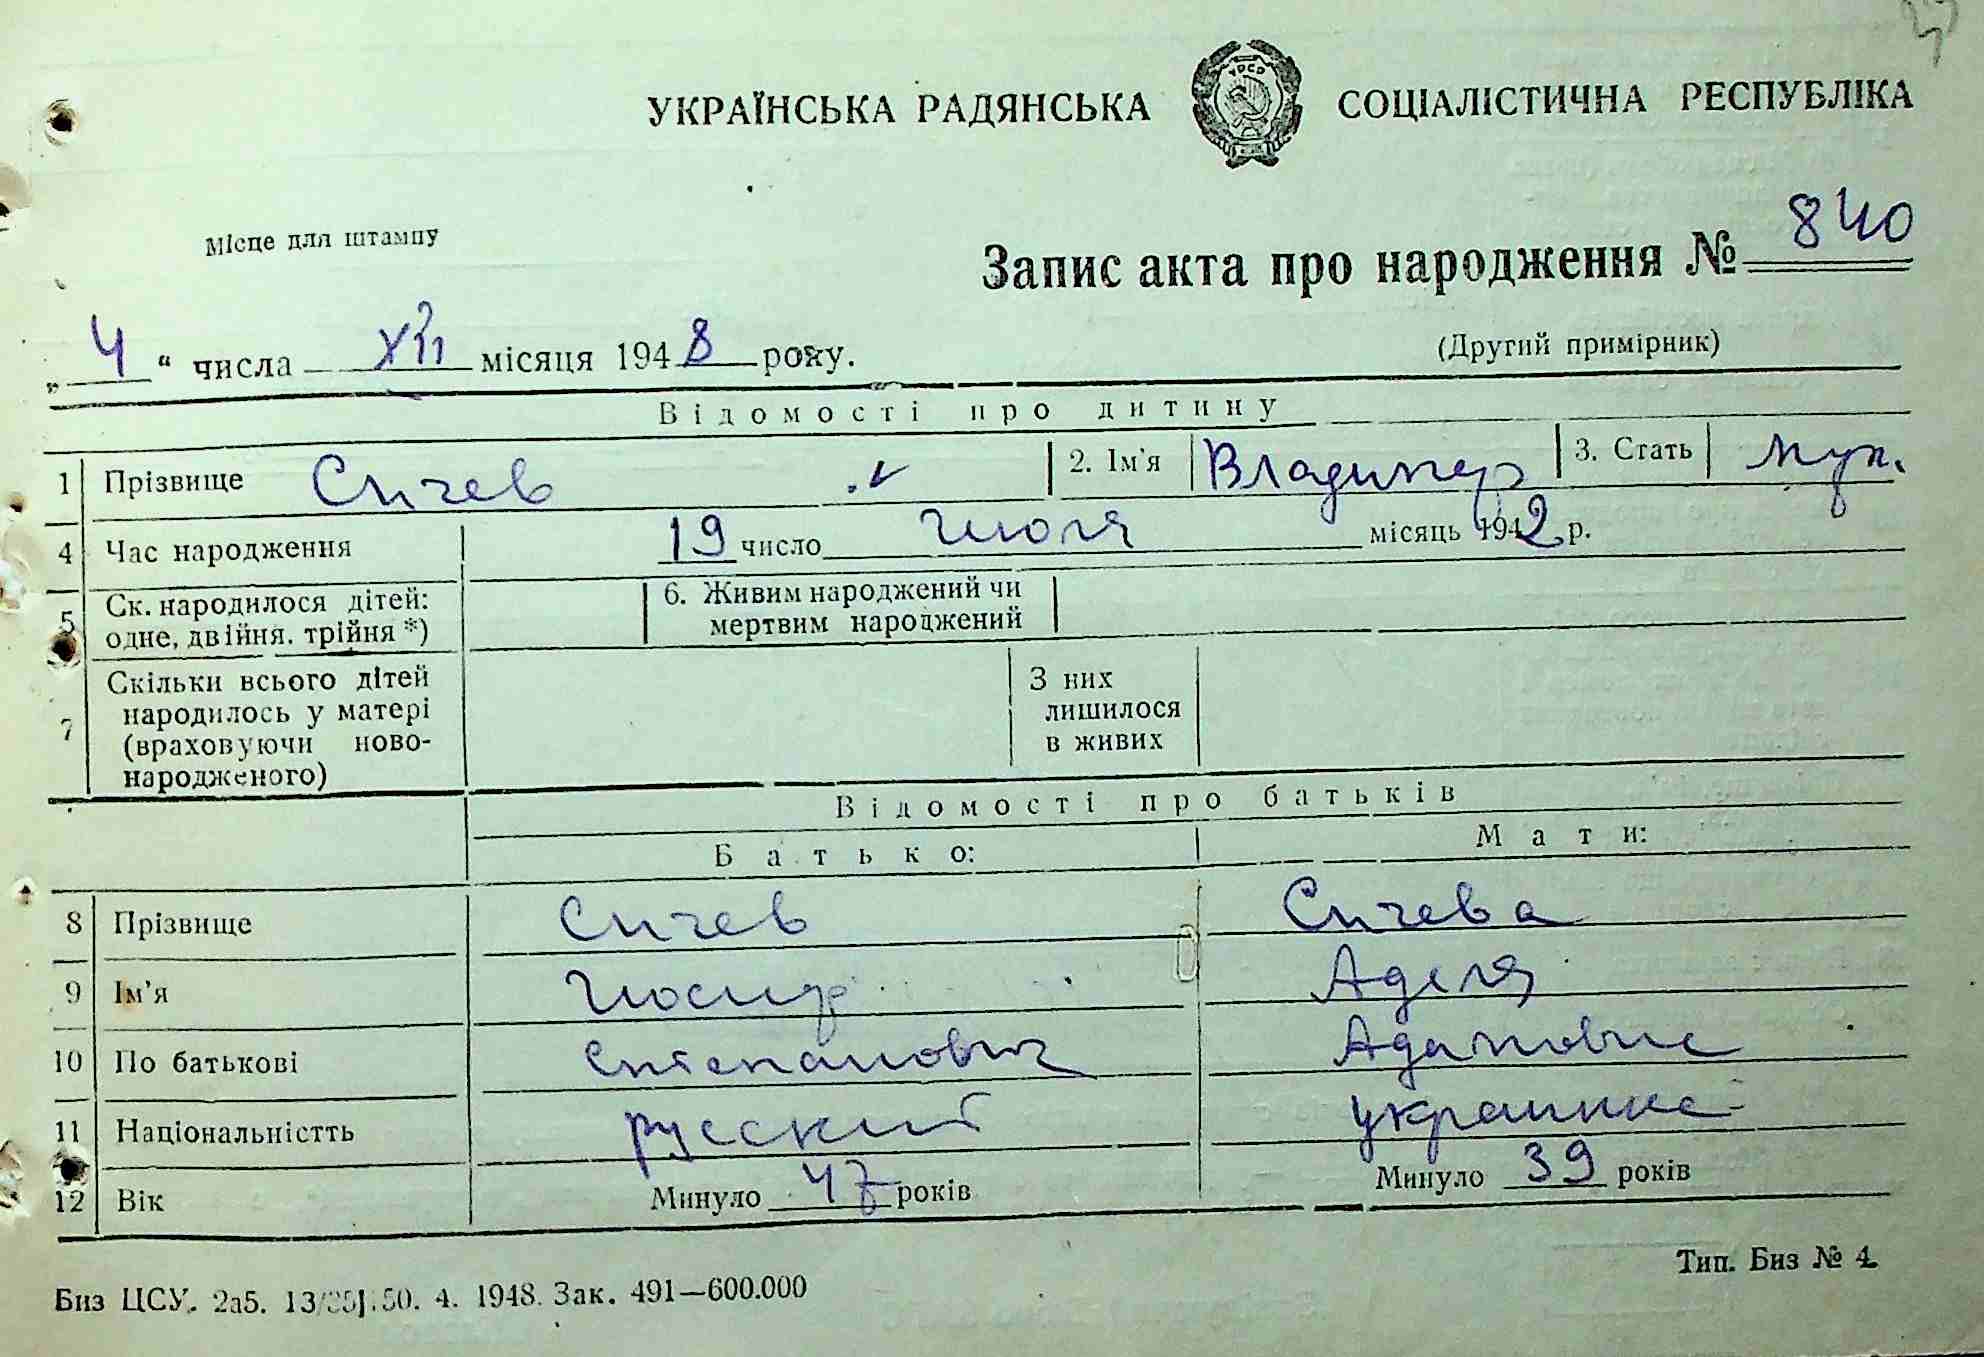 УКРАЇНСЬКА РАДЯНСЬКА СОЦІАЛІСТИЧНА РЕСПУБЛІКА
УРСР
Місце для штампу
Запис акта про народження № 840
„ 4 “ числа XII місяця 1948 року.
(Другий примірник)
Відомості про дитину
1 Прізвище Сичев 2. Ім'я Владимир 3. Стать муж.
4 Час народження 19 число Июля місяць 1942 р.
5 Ск. народилося дітей: одне, двійня. трійня *) 6. Живим народжений чи мертвим народжений
7 Скільки всього дітей народилось у матері (враховуючи новонародженого) З них лишилося в живих
Відомості про батьків
Батько: Мати:
8 Прізвище Сичев Сичева
9 Ім'я Иосиф Аделя
10 По батькові Степанович Адамовна
11 Національністть русский украинка
12 Вік Минуло 47 років Минуло 39 років
Тип. Биз № 4.
Биз ЦСУ. 2а5. 50. 4. 1948. Зак. 491—600.000